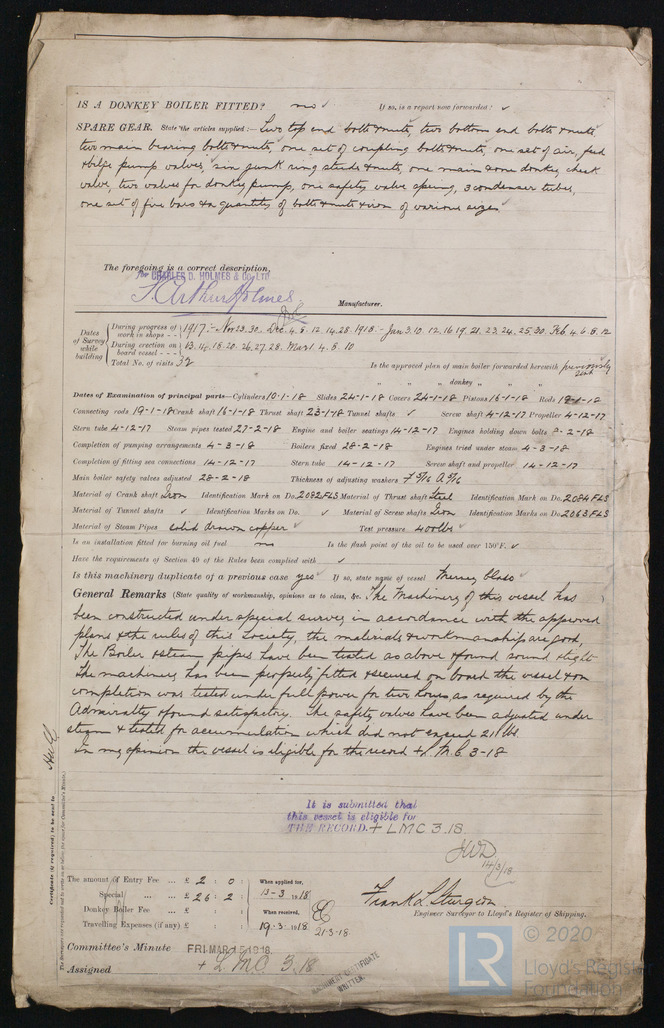 IS A DONKEY BOILER FITTED? no ✓ If so, is a report now forwarded? ✓
SPARE GEAR. State the articles supplied:— Two top end bolts & nuts, two bottom end bolts & nuts,
two main bearing bolts & nuts, one set of coupling bolts & nuts, one set of air, feed
& bilge pump valves, six junk ring studs & nuts, one main & one donkey check
valve, two valves for donkey pump, one safety valve spring, 3 condenser tubes,
one set of fire bars & a quantity of bolts & nuts & iron of various sizes ✓
The foregoing is a correct description,
For CHARLES D. HOLMES & Co., LTD
Arthur Holmes Manufacturer.
Dates of Survey while building
During progress of work in shops - - 1917:- Nov 23. 30. Dec 4. 5. 12. 14. 28. 1918 - Jan 3. 10. 12. 16. 19. 21. 23. 24. 25. 30. Feb 4. 6. 8. 12
During erection on board vessel - - - 13. 14. 18. 20. 26. 27. 28. Mar 1. 4. 8. 10
Total No. of visits 32
Is the approved plan of main boiler forwarded herewith previously sent
" " " donkey " " "
Dates of Examination of principal parts—Cylinders 10-1-18 Slides 24-1-18 Covers 24-1-18 Pistons 16-1-18 Rods 19-1-18
Connecting rods 19-1-18 Crank shaft 16-1-18 Thrust shaft 23-1-18 Tunnel shafts ✓ Screw shaft 4-12-17 Propeller 4-12-17
Stern tube 4-12-17 Steam pipes tested 27-2-18 Engine and boiler seatings 14-12-17 Engines holding down bolts 8-2-18
Completion of pumping arrangements 4-3-18 Boilers fixed 28-2-18 Engines tried under steam 4-3-18
Completion of fitting sea connections 14-12-17 Stern tube 14-12-17 Screw shaft and propeller 14-12-17
Main boiler safety valves adjusted 28-2-18 Thickness of adjusting washers
Material of Crank shaft Iron Identification Mark on Do. 2082 FLS Material of Thrust shaft Steel Identification Mark on Do. 2084 FLS
Material of Tunnel shafts ✓ Identification Marks on Do. ✓ Material of Screw shafts Iron Identification Marks on Do. 2063 FLS
Material of Steam Pipes solid drawn copper ✓ Test pressure 400 lbs ✓
Is an installation fitted for burning oil fuel no Is the flash point of the oil to be used over 150°F. ✓
Have the requirements of Section 49 of the Rules been complied with ✓
Is this machinery duplicate of a previous case yes If so, state name of vessel Mersey Class
General Remarks (State quality of workmanship, opinions as to class, &c. The Machinery of this vessel has
been constructed under special survey in accordance with the approved
plans & the rules of this Society, the materials & workmanship are good,
The Boiler & steam pipes have been tested as above & found sound & tight
The machinery has been properly fitted & secured on board the vessel & on
completion was tested under full power for two hours as required by the
Admiralty & found satisfactory. The safety valves have been adjusted under
steam & tested for accumulation which did not exceed 211 lbs
In my opinion the vessel is eligible for the record + L.M.C 3-18
It is submitted that
this vessel is eligible for
THE RECORD. + LMC 3.18.
14/3/18
Certificate (if required) to be sent to Hull
The amount of Entry Fee ... £ 2 : 0 : When applied for,
Special ... £ 26 : 2 : 13-3 1918
Donkey Boiler Fee ... £ : : When received,
Travelling Expenses (if any) £ : : 19-3-1918 21-3-18
Frank L Sturgeon
Engineer Surveyor to Lloyd's Register of Shipping.
Committee's Minute FRI. MAR 15 1918
Assigned + L.M.C. 3.18
MACHINERY CERTIFICATE
WRITTEN.
LR
© 2020
Lloyd's Register
Foundation